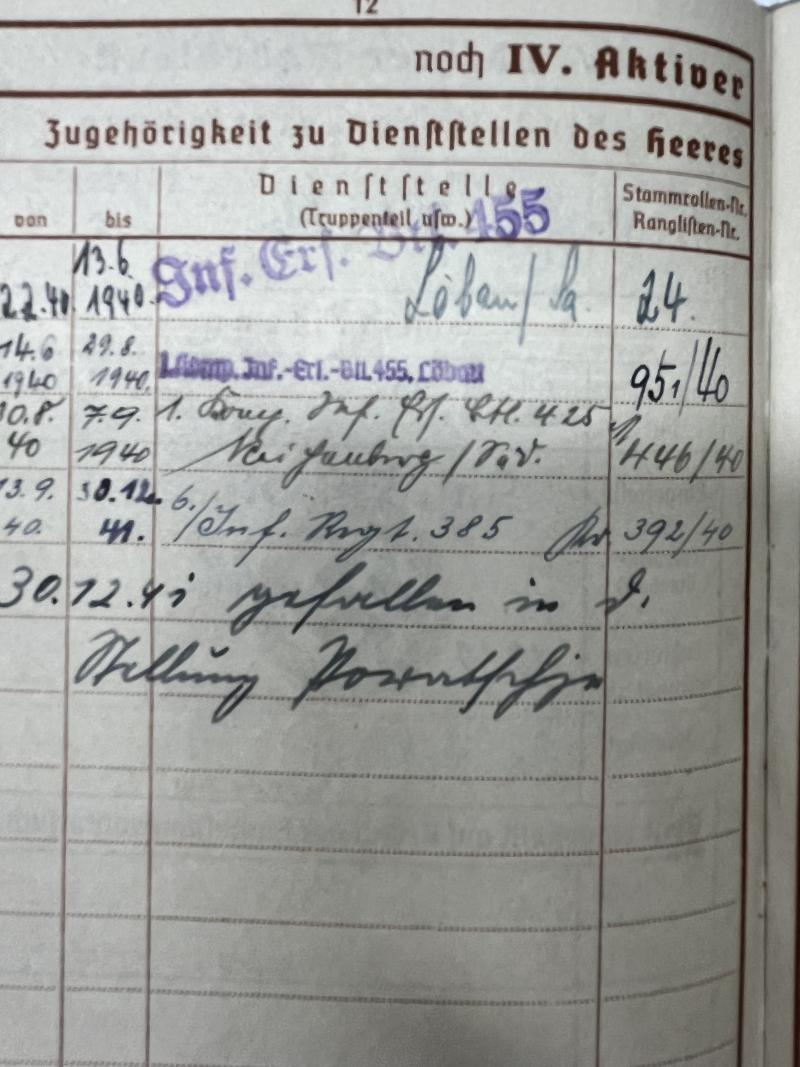 12
noch IV. Aktiver
Zugehörigkeit zu Dienststellen des Heeres
von bis Dienststelle (Truppenteil usw.) Stammrollen-Nr. Ranglisten-Nr.
13.6. Inf. Ers. Btl. 455
22.40. 1940. Löbau/Sa. 24.
14.6 29.8.
1940 1940. Inf.-Ers.-Btl. 455, Löbau 951/40
30.8. 7.9. 1. Komp. Inf. Ers. Btl. 425
40 1940 Reichenberg/Sud. 446/40
13.9. 30.12. 6./Inf. Regt. 385 Nr. 392/40
40. 41.
30.12.41 gefallen in d.
Stellung